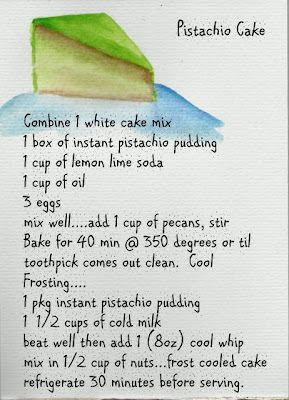 Pistachio Cake
Combine 1 white cake mix
1 box of instant pistachio pudding
1 cup of lemon lime soda
1 cup of oil
3 eggs
mix well....add 1 cup of pecans, stir
Bake for 40 min @ 350 degrees or til
toothpick comes out clean.  Cool
Frosting....
1 pkg instant pistachio pudding
1  1/2 cups of cold milk
beat well then add 1 (8oz) cool whip
mix in 1/2 cup of nuts...frost cooled cake
refrigerate 30 minutes before serving.